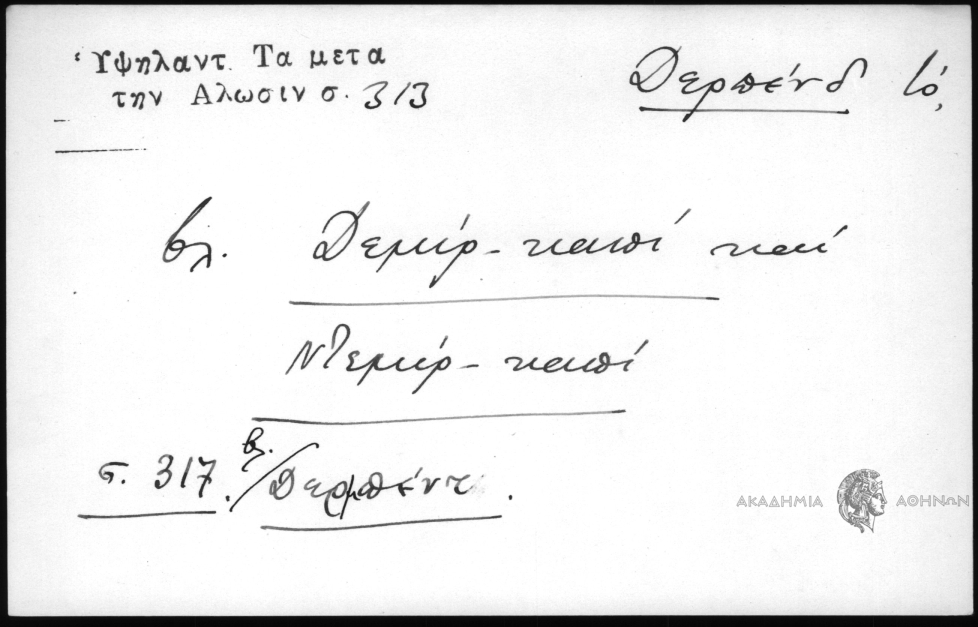 Ὑψηλαντ. Τα μετα
την Αλωσιν σ. 313
Δερπένδ τό,
βλ. Δεμίρ-καπί καί
Ντεμίρ-καπί
σ. 317. βλ. Δερμπέντ.
ΑΚΑΔΗΜΙΑ ΑΘΗΝΩΝ